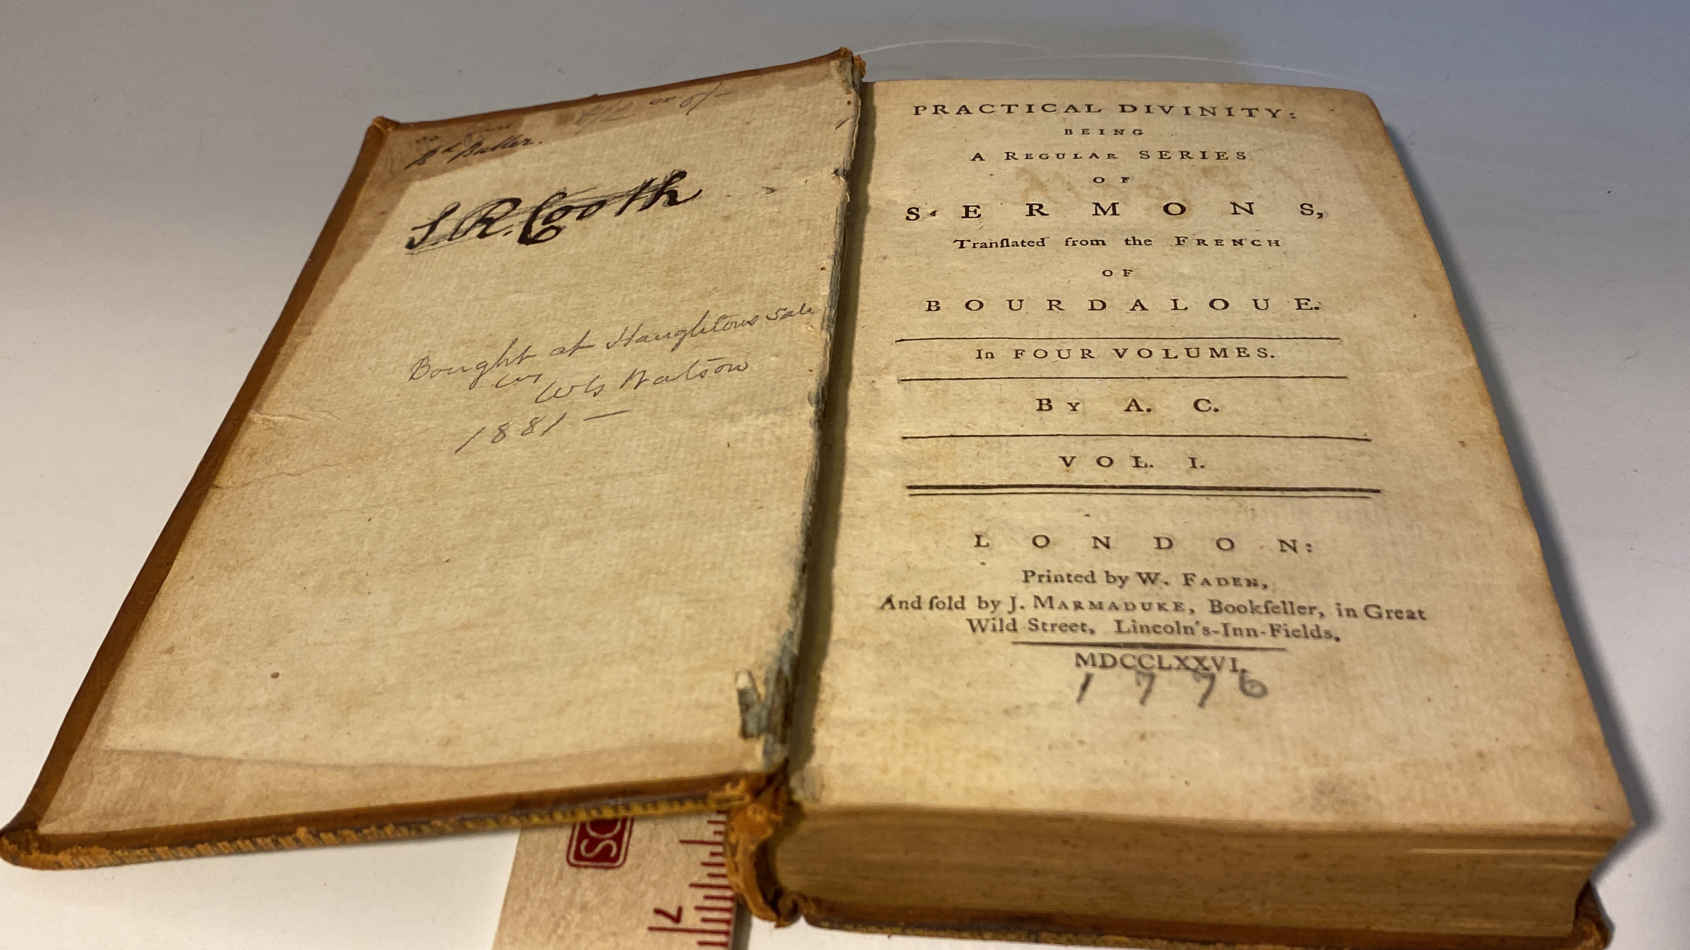 or 6/-
Butler.
S. R. Cooth
Bought at Haughtons Sale
by
WG Watson
1881 —
PRACTICAL DIVINITY:
BEING
A REGULAR SERIES
OF
SERMONS,
Tranſlated from the FRENCH
OF
BOURDALOUE.
In FOUR VOLUMES.
By A. C.
VOL. I.
LONDON:
Printed by W. FADEN,
And ſold by J. MARMADUKE, Bookſeller, in Great
Wild Street, Lincoln's-Inn-Fields.
MDCCLXXVI.
1776
SC
7